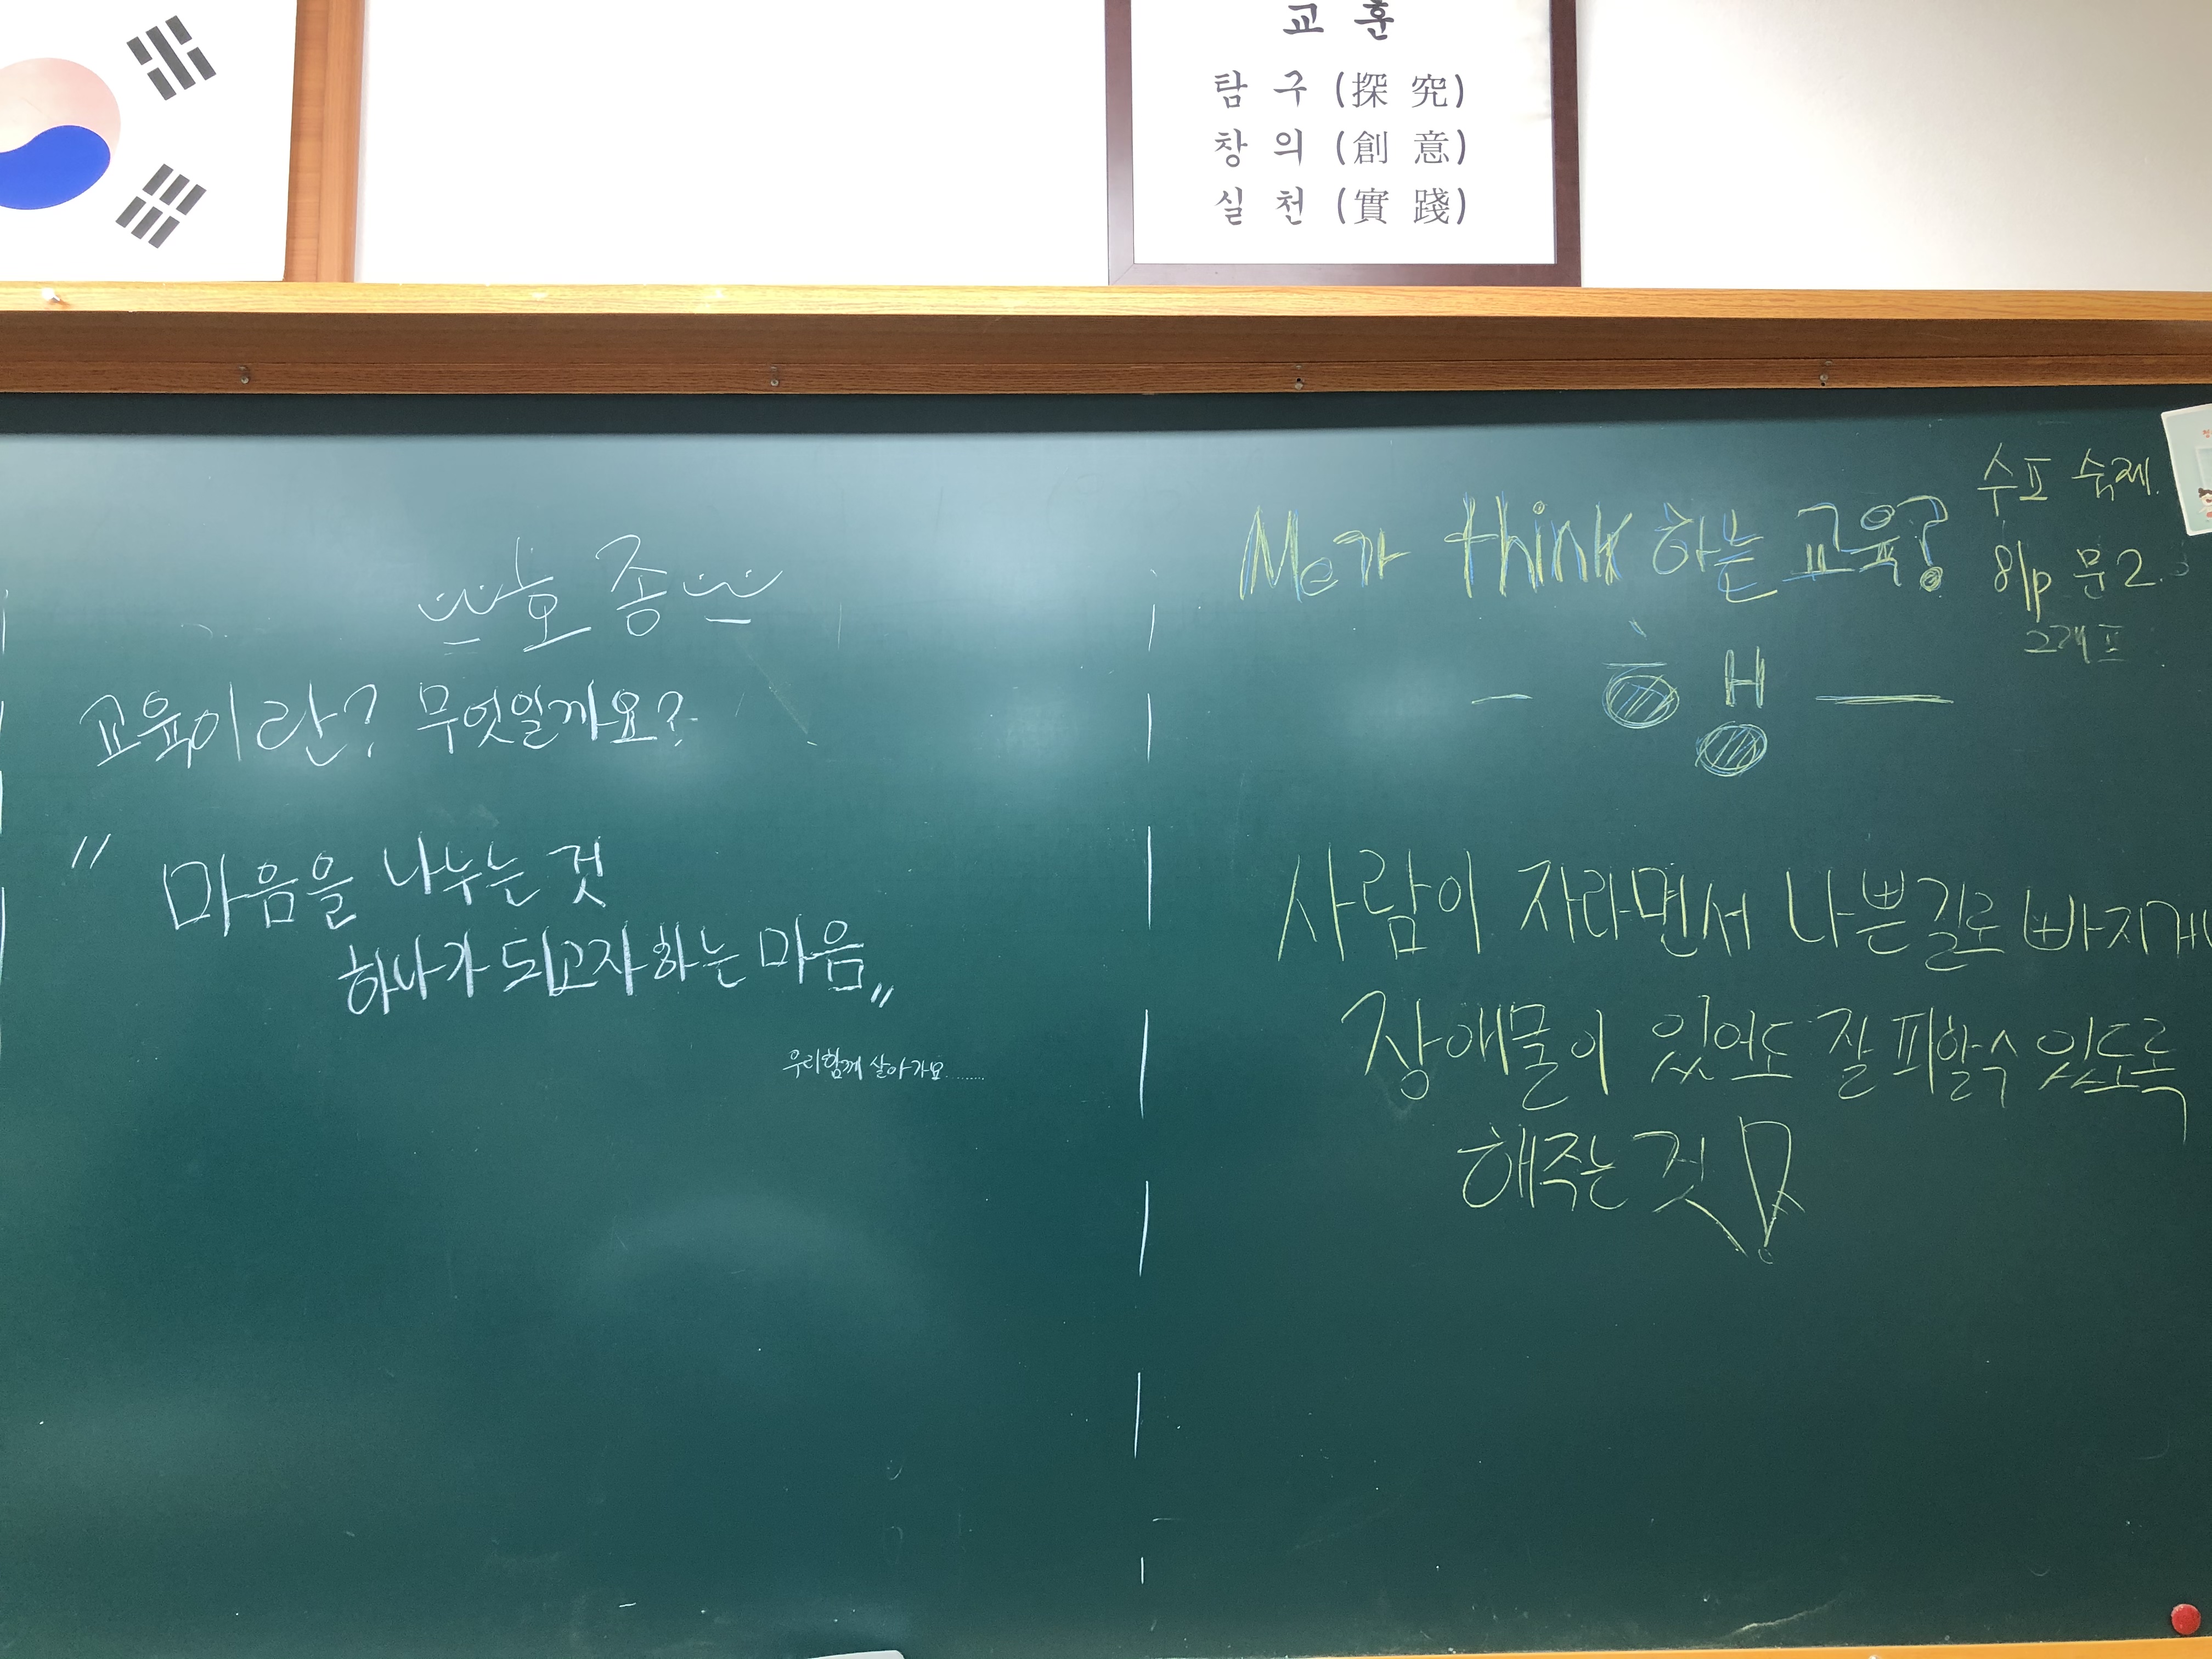 교 훈
탐 구 (探 究)
창 의 (創 意)
실 천 (實 踐)
호 종
교육이란? 무엇일까요?
" 마음을 나누는 것
하나가 되고자 하는 마음 "
우리함께 살아가요........
Me가 think 하는 교육?
사람이 자라면서 나쁜길로 빠지게
장애물이 있어도 잘 피할수 있도록
해주는 것!
수표 숙제.
81p 문2.